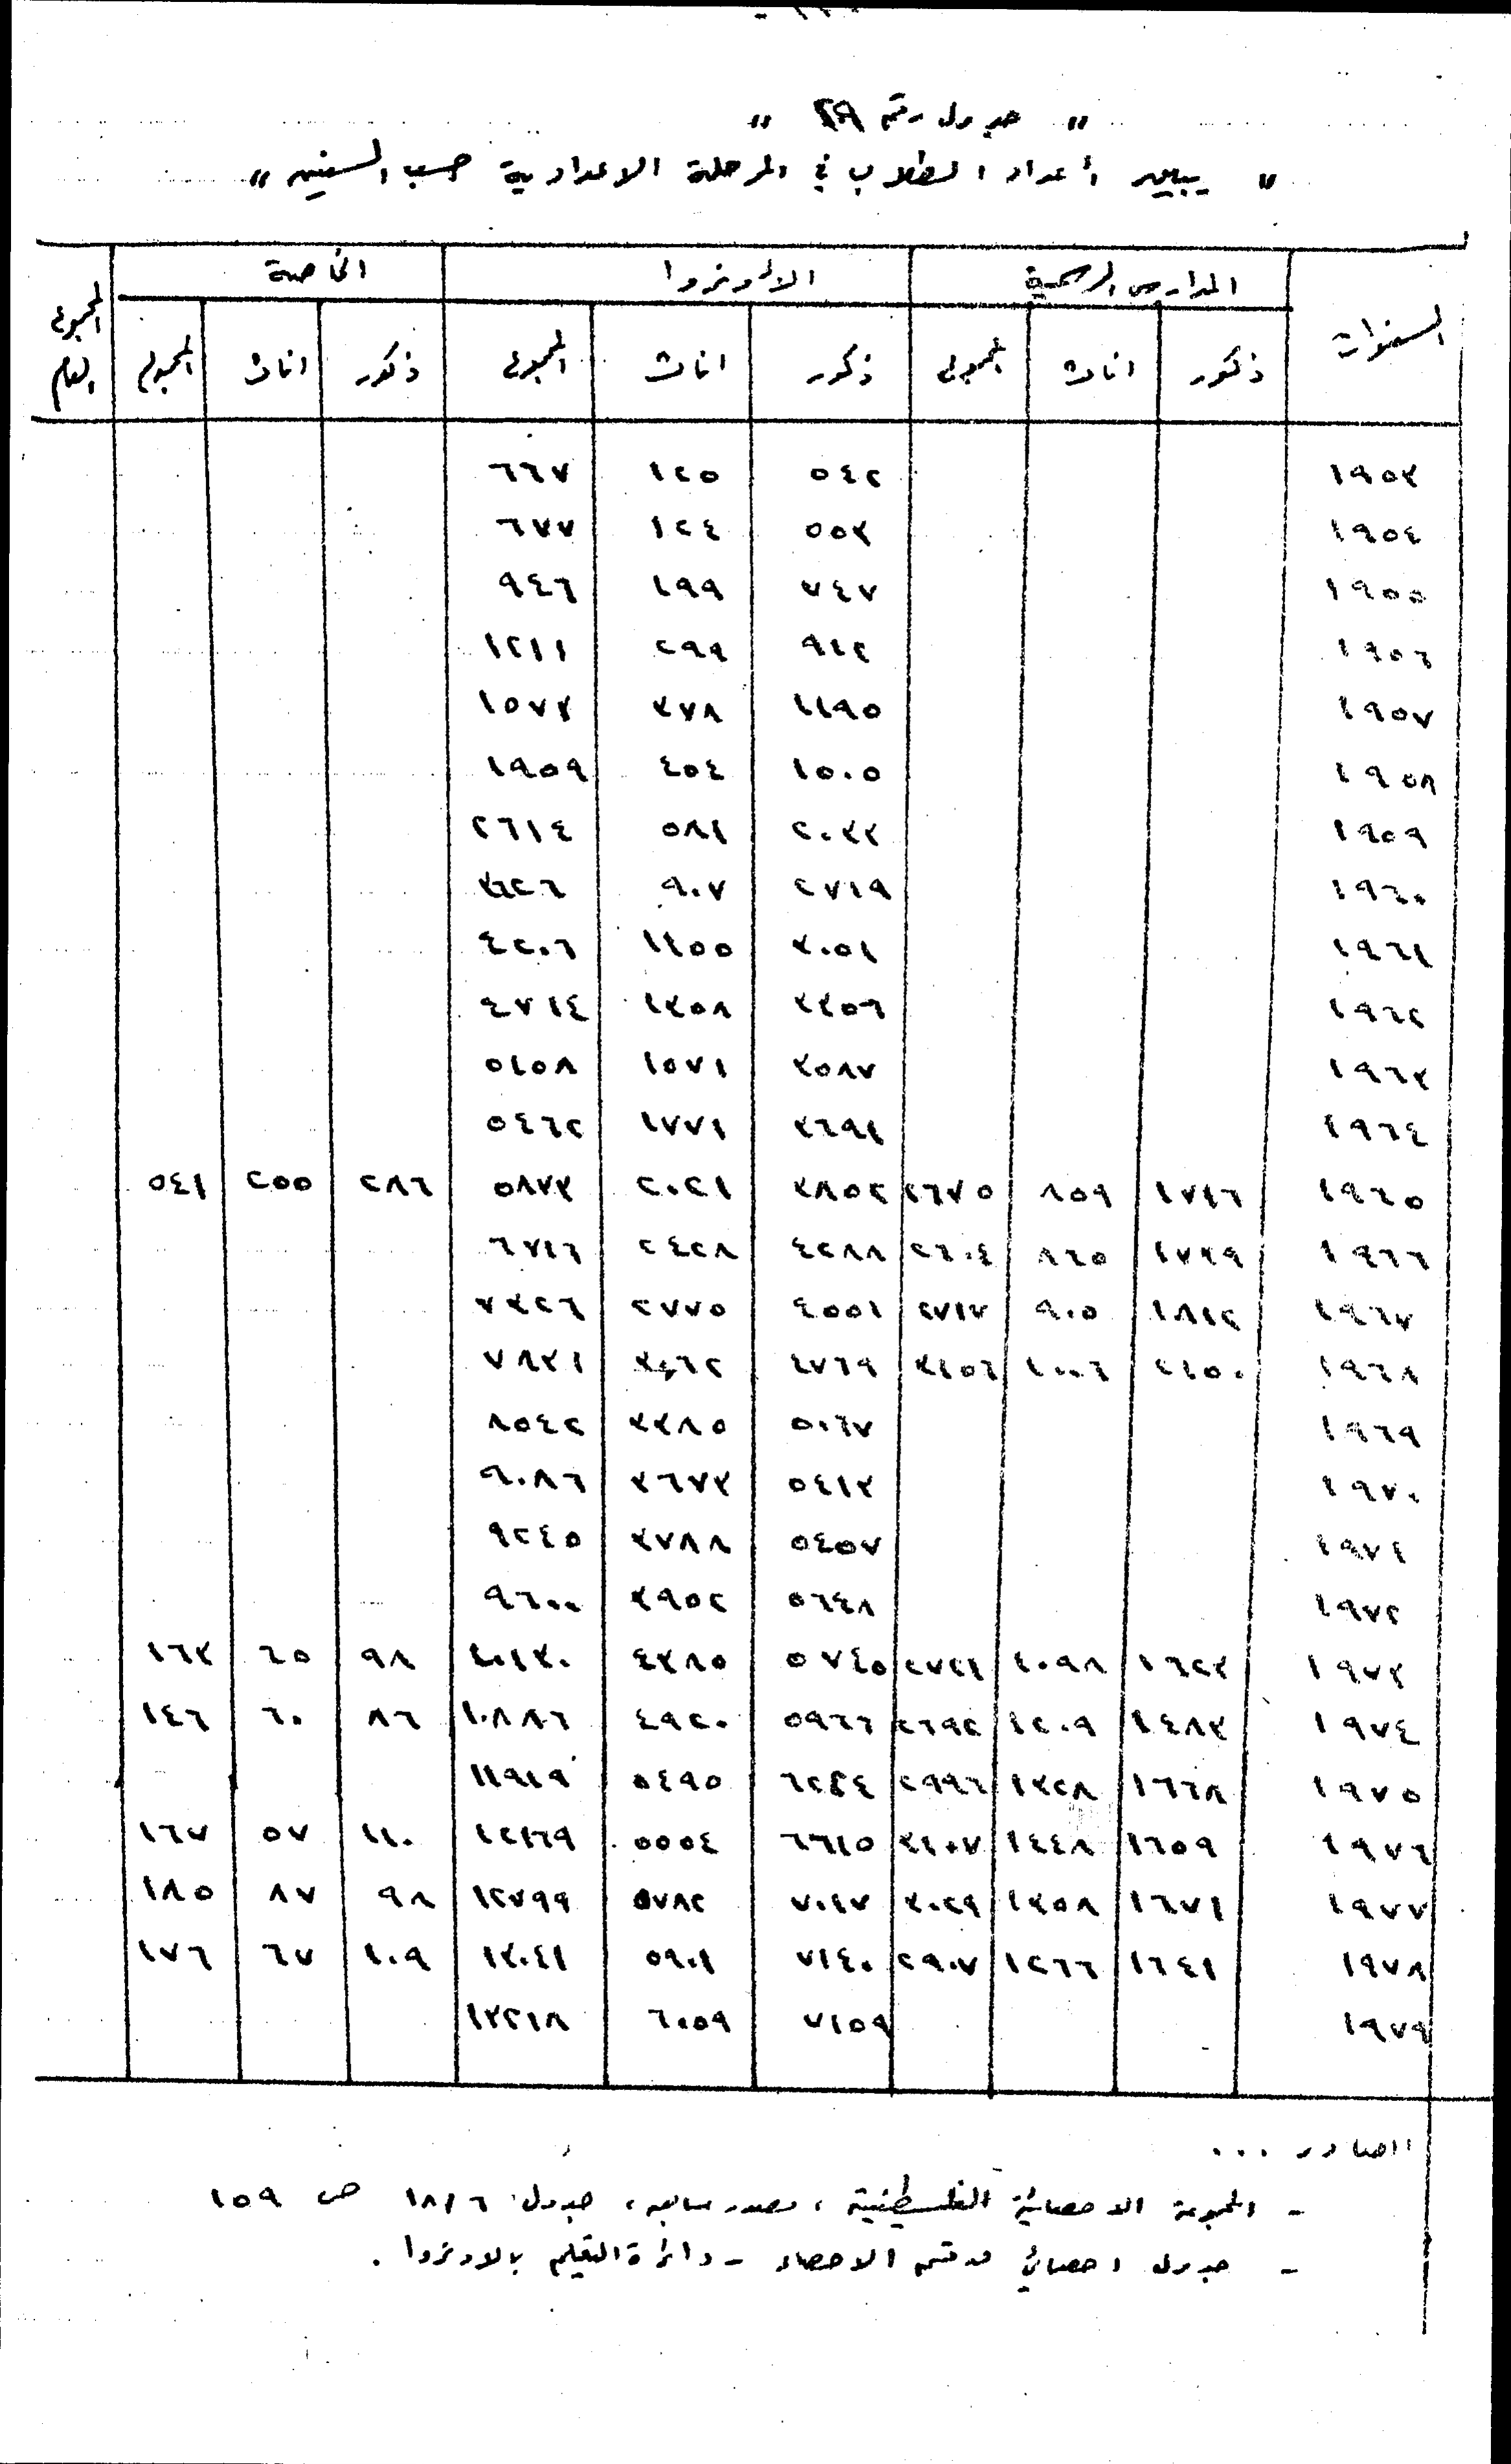 " جدول رقم ٢٩ "
" يبين أعداد الطلاب في المرحلة الاعدادية حسب السنين "
السنوات المدارس الرسمية الأونروا الخاصة المجموع العام
ذكور اناث المجموع ذكور اناث المجموع ذكور اناث المجموع
١٩٥٣ ٥٤٢ ١٢٥ ٦٦٧
١٩٥٤ ٥٥٣ ١٢٤ ٦٧٧
١٩٥٥ ٧٤٧ ١٩٩ ٩٤٦
١٩٥٦ ٩١٢ ٢٩٩ ١٢١١
١٩٥٧ ١١٩٥ ٣٧٨ ١٥٧٣
١٩٥٨ ١٥٠٥ ٤٥٤ ١٩٥٩
١٩٥٩ ٢٠٣٣ ٥٨١ ٢٦١٤
١٩٦٠ ٢٧١٩ ٩٠٧ ٣٦٢٦
١٩٦١ ٣٠٥١ ١١٥٥ ٤٢٠٦
١٩٦٢ ٣٣٥٦ ١٣٥٨ ٤٧١٤
١٩٦٣ ٣٥٨٧ ١٥٧١ ٥١٥٨
١٩٦٤ ٣٦٩١ ١٧٧١ ٥٤٦٢
١٩٦٥ ١٧١٦ ٨٥٩ ٢٦٧٥ ٣٨٥٢ ٢٠٢١ ٥٨٧٣ ٢٨٦ ٢٥٥ ٥٤١
١٩٦٦ ١٧٣٩ ٨٦٥ ٢٦٠٤ ٤٢٨٨ ٢٤٢٨ ٦٧١٦
١٩٦٧ ١٨١٢ ٩٠٥ ٢٧١٧ ٤٥٥١ ٢٧٧٥ ٧٣٢٦
١٩٦٨ ٢١٥٠ ١٠٠٦ ٣١٥٦ ٤٧٦٩ ٣٠٦٢ ٧٨٣١
١٩٦٩ ٥٠٦٧ ٣٣٨٥ ٨٥٤٢
١٩٧٠ ٥٤١٣ ٣٦٧٣ ٩٠٨٦
١٩٧١ ٥٤٥٧ ٣٧٨٨ ٩٢٤٥
١٩٧٢ ٥٦٤٨ ٣٩٥٢ ٩٦٠٠
١٩٧٣ ١٦٢٣ ١٠٩٨ ٢٧٢١ ٥٧٤٥ ٤٣٨٥ ١٠١٣٠ ٩٨ ٦٥ ١٦٣
١٩٧٤ ١٤٨٣ ١٢٠٩ ٢٦٩٢ ٥٩٦٦ ٤٩٢٠ ١٠٨٨٦ ٨٦ ٦٠ ١٤٦
١٩٧٥ ١٦٦٨ ١٣٢٨ ٢٩٩٦ ٦٤٢٤ ٥٤٩٥ ١١٩١٩
١٩٧٦ ١٦٥٩ ١٤٤٨ ٣١٠٧ ٦٦١٥ ٥٥٥٤ ١٢١٦٩ ١١٠ ٥٧ ١٦٧
١٩٧٧ ١٦٧١ ١٣٥٨ ٣٠٢٩ ٧٠١٧ ٥٧٨٢ ١٢٧٩٩ ٩٨ ٨٧ ١٨٥
١٩٧٨ ١٦٤١ ١٢٦٦ ٢٩٠٧ ٧١٤٠ ٥٩٠١ ١٣٠٤١ ١٠٩ ٦٧ ١٧٦
١٩٧٩ ٧١٥٩ ٦٠٥٩ ١٣٢١٨
المصادر ...
- المجموعة الاحصائية الفلسطينية ، مصدر سابق ، جدول ١٨/٦ ص ١٥٩
- جدول احصائي من قسم الاحصاء - دائرة التعليم بالاونروا .